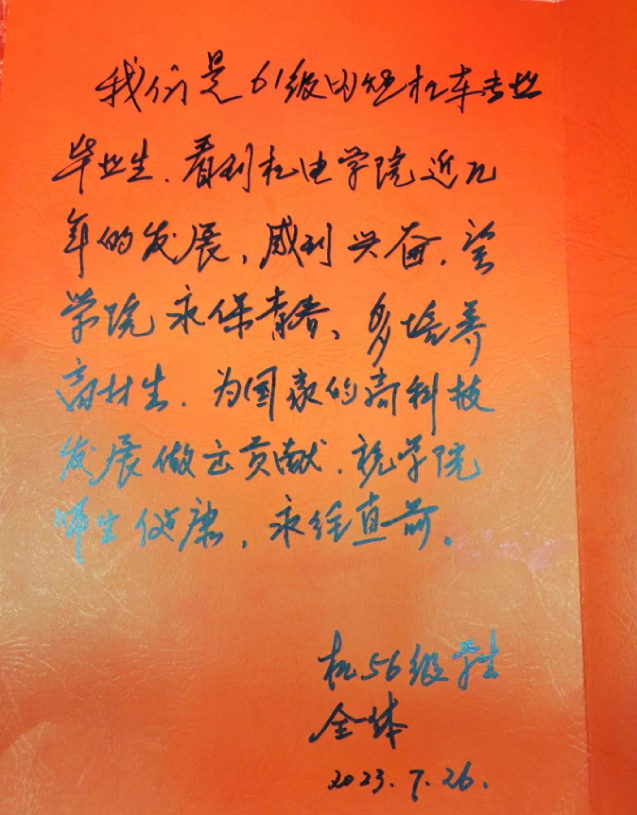 我们是61级内燃机车专业
毕业生.看到机电学院近几
年的发展,感到兴奋.望
学院永保青春、多培养
高材生.为国家的高科技
发展做出贡献.祝学院
师生健康,永往直前。
机56级学生
全体
2023.7.26.